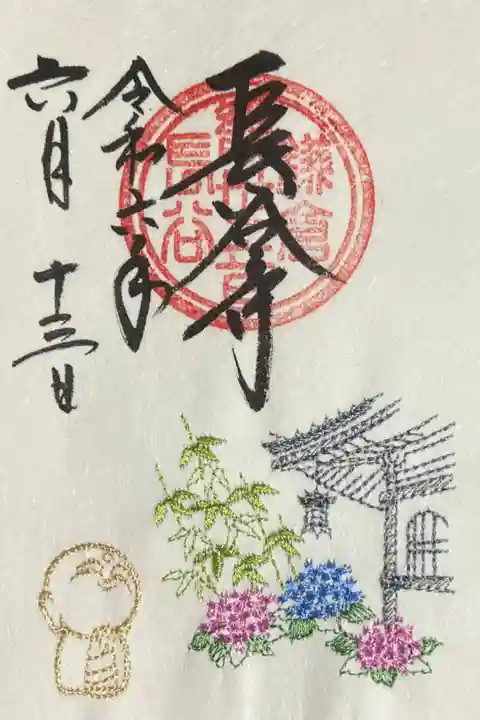 長谷寺
令和六年
六月十三日
鎌倉
長谷